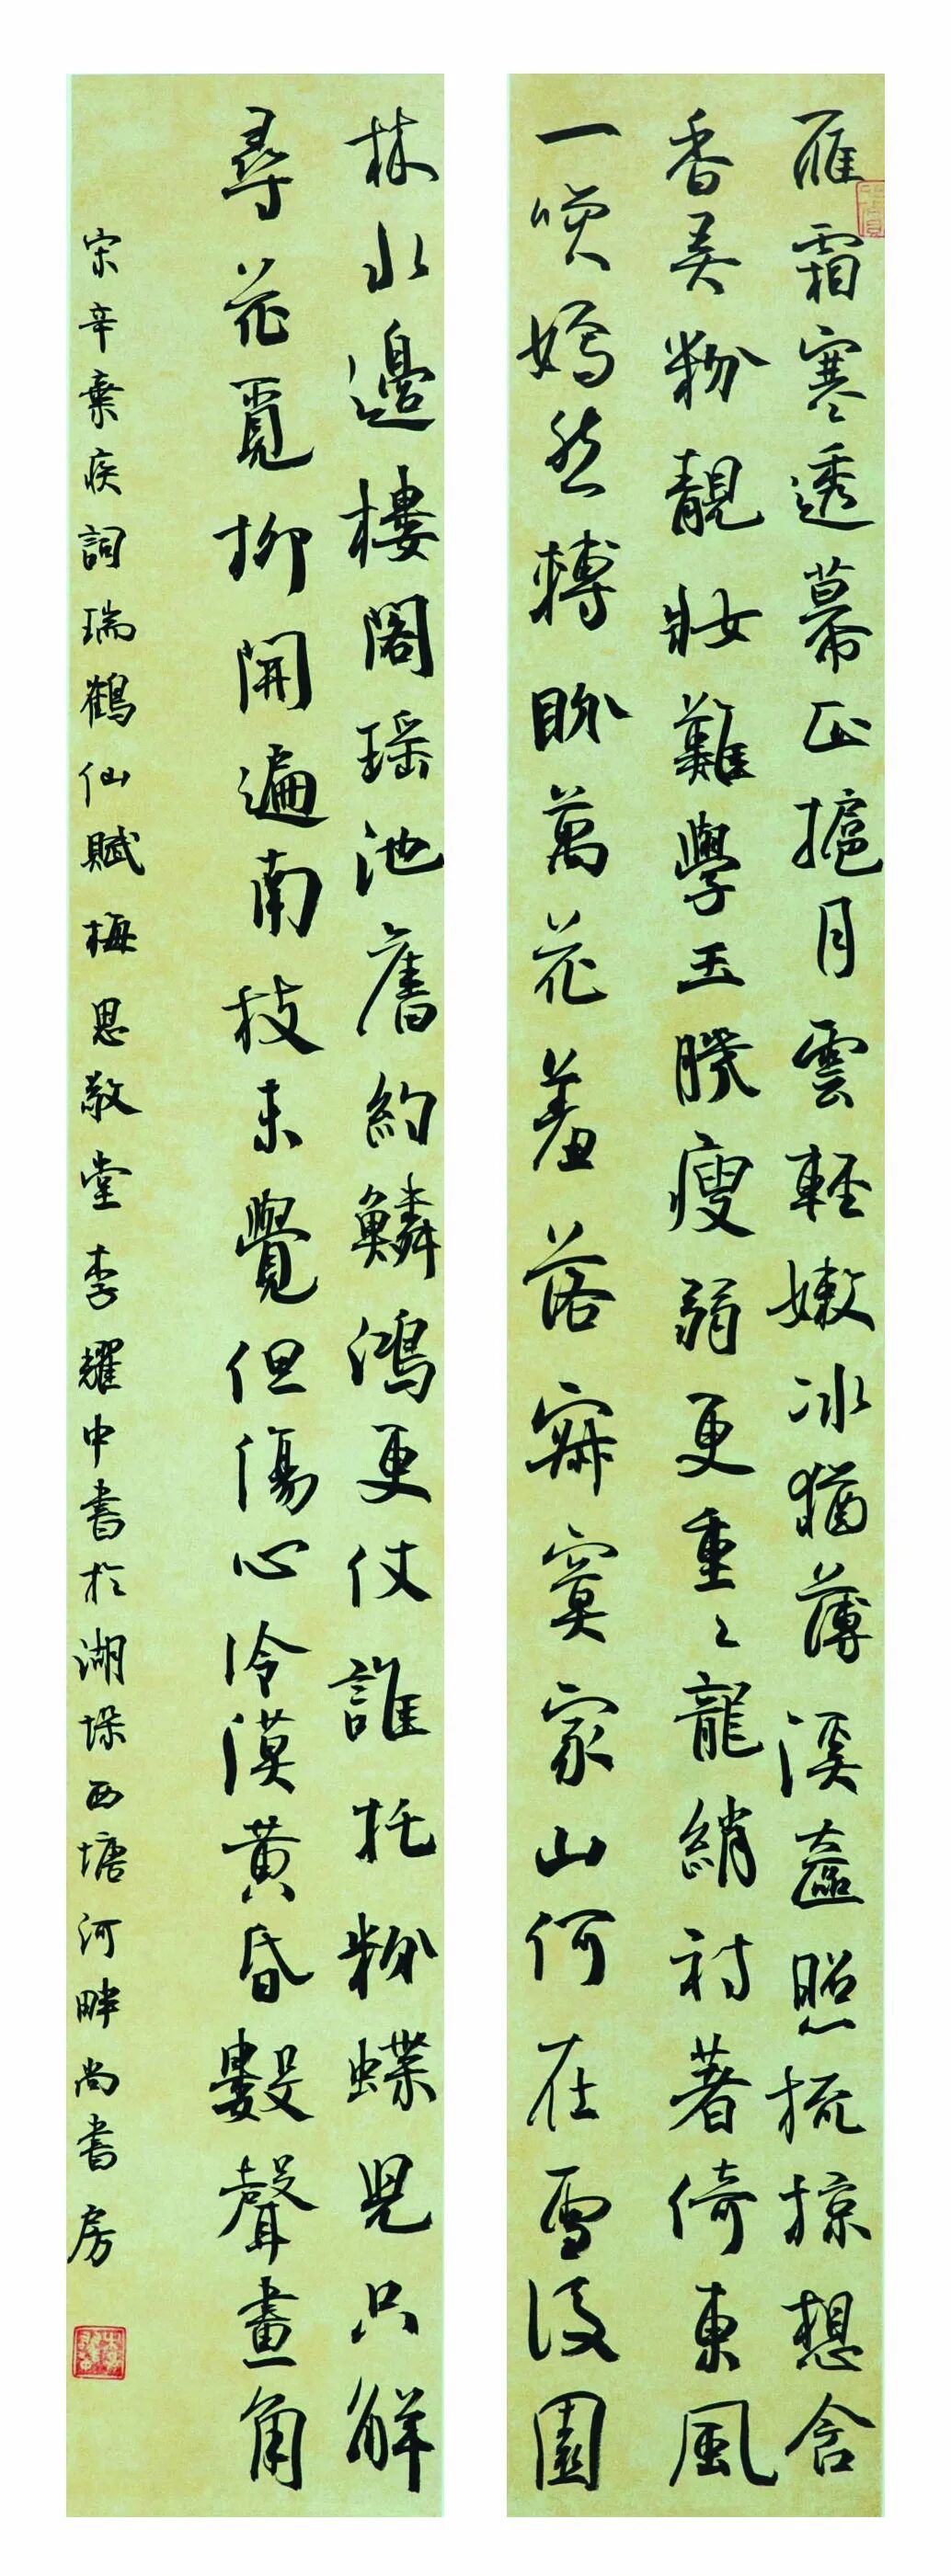 雁霜寒透幕正護月雲輕嫩冰猶薄溪奩照梳掠想含
香弄粉靚妝難學玉肌瘦弱更重々龍綃襯著倚東風
一咲嫣然轉盼萬花羞落寂寞家山何在雪後園
林水邊樓閣瑶池舊約鱗鴻更仗誰托粉蝶児只解
尋花覓柳開遍南枝未覺但傷心冷漠黄昏數聲畫角
宋辛棄疾詞瑞鶴仙賦梅思敬堂李耀中書於湖垛西塘河畔尚書房